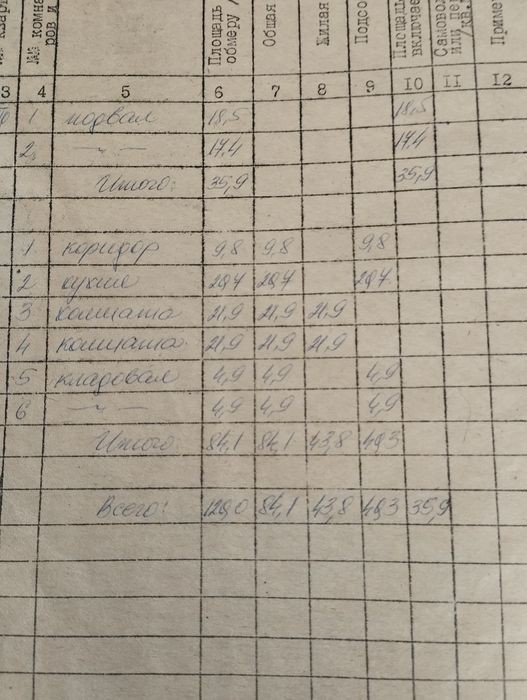 №№ комна
ров и
Площадь
обмеру /
Общая
Жилая
Подсо
Площадь
включае
Самовол
или пер
/кв.
Приме
3 4 5 6 7 8 9 10 11 12
1 подвал 18,5 18,5
2 —"— 17,4 17,4
Итого: 35,9 35,9
1 коридор 9,8 9,8 9,8
2 кухня 20,7 20,7 20,7
3 комната 21,9 21,9 21,9
4 комната 21,9 21,9 21,9
5 кладовая 4,9 4,9 4,9
6 —"— 4,9 4,9 4,9
Итого 84,1 84,1 43,8 40,3
Всего: 120,0 84,1 43,8 40,3 35,9